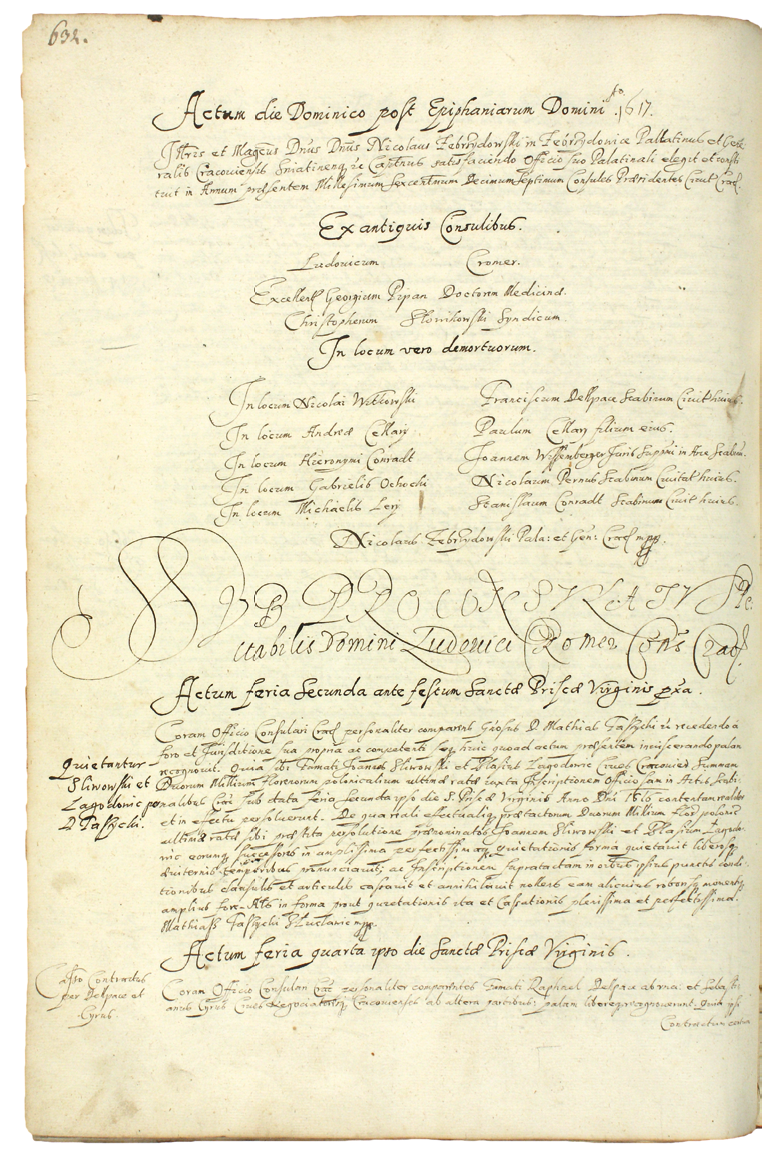 632.
Actum die Dominico post Epiphaniarum Domini Ao. 1617.
Illris et Magcus Dnus Dnus Nicolaus Zebrzydowski in Zebrzydowice Pallatinus et Gene
ralis Cracoviensis Sniatinensq ec Captnus satisfaciendo Officio suo Palatinali elegit et consti
tuit in Annum praesentem Millesimum Sexcentnum Decimum Septimum Consules Praesidentes Civit Crac.
Ex antiquis Consulibus.
Ludovicum Cromer.
Excellent Georgium Pipan Doctorem Medicinae.
Christophorum Słowikowski Syndicum.
In locum vero demortuorum.
In locum Nicolai Witkowski Franciscum Delpace Scabinum Civit huius.
In locum Andreae Cellary Paulum Cellary filium eius.
In locum Hieronymi Conradt Joannem Wissenberger Juris Suppmi in Arce Scabin.
In locum Gabrielis Ochocki Nicolaum Pernus Scabinum Civitat huius.
In locum Michaelis Leny Stanislaum Conradt Scabinum Civit huius.
Nicolaus Zebrzydowski Pala: et Gen: Crac mpp.
SVB PROCONSVLATV Spe
ctabilis Domini Ludovici Cromer Cons Crac.
Actum feria Secunda ante festum Sanctae Priscae Virginis pxa.
Coram Officio Consulari Crac personaliter comparens Gnosus D Mathias Taszycki recedendo a
foro et Jurisditione sua propria ac competenti seq huic quoad actum praesentem inviscerando palam
recognovit. Quia sibi Famati Joannes Sliwowski et Blasius Lagodowic Cives Cracovien Summam
Duorum Millium florenorum polonicalium ultimae ratae iuxta Inscriptionem Officiosam in Actis Scabi
nalibus Crac sub data feria Secunda ipso die S. Priscae Virginis Anno Dni 1616 contentam realiter
et in effectu persolverunt. De qua reali effectualiq praetactorum Duorum Millium flor polonic
ultimae ratae sibi praestita persolutione praenominatos Joannem Sliwowski et Blasium Lagodo
wic eorumq successores in amplissima perfectissimaq quietationis forma quietavit liberosq
aeviternis temporibus pronunciavit; ac Inscriptionem supratactam in oibus ipsius punctis condi
tionibus clausulis et articulis cassavit et annihilavit nolens eam alicuius roboris momentiq
amplius fore. Ats in forma prout quietationis ita et Cassationis plenissima et perfectissima.
Mathiass Taszycki S Luclawic mpp.
Quietantur
Sliwowski et
Lagodowic per
D Taszycki.
Actum feria quarta ipso die Sanctae Priscae Virginis.
Cassao Contractus
per Delpace et
Cyrus.
Coram Officio Consulari Crac personaliter comparentes Famati Raphael Delpace ab una: et Sebasti
anus Cyrus Cives et Negociatores Cracovienses ab altera partibus; palam libereq recognoverunt. Quia ipsi
Contractum